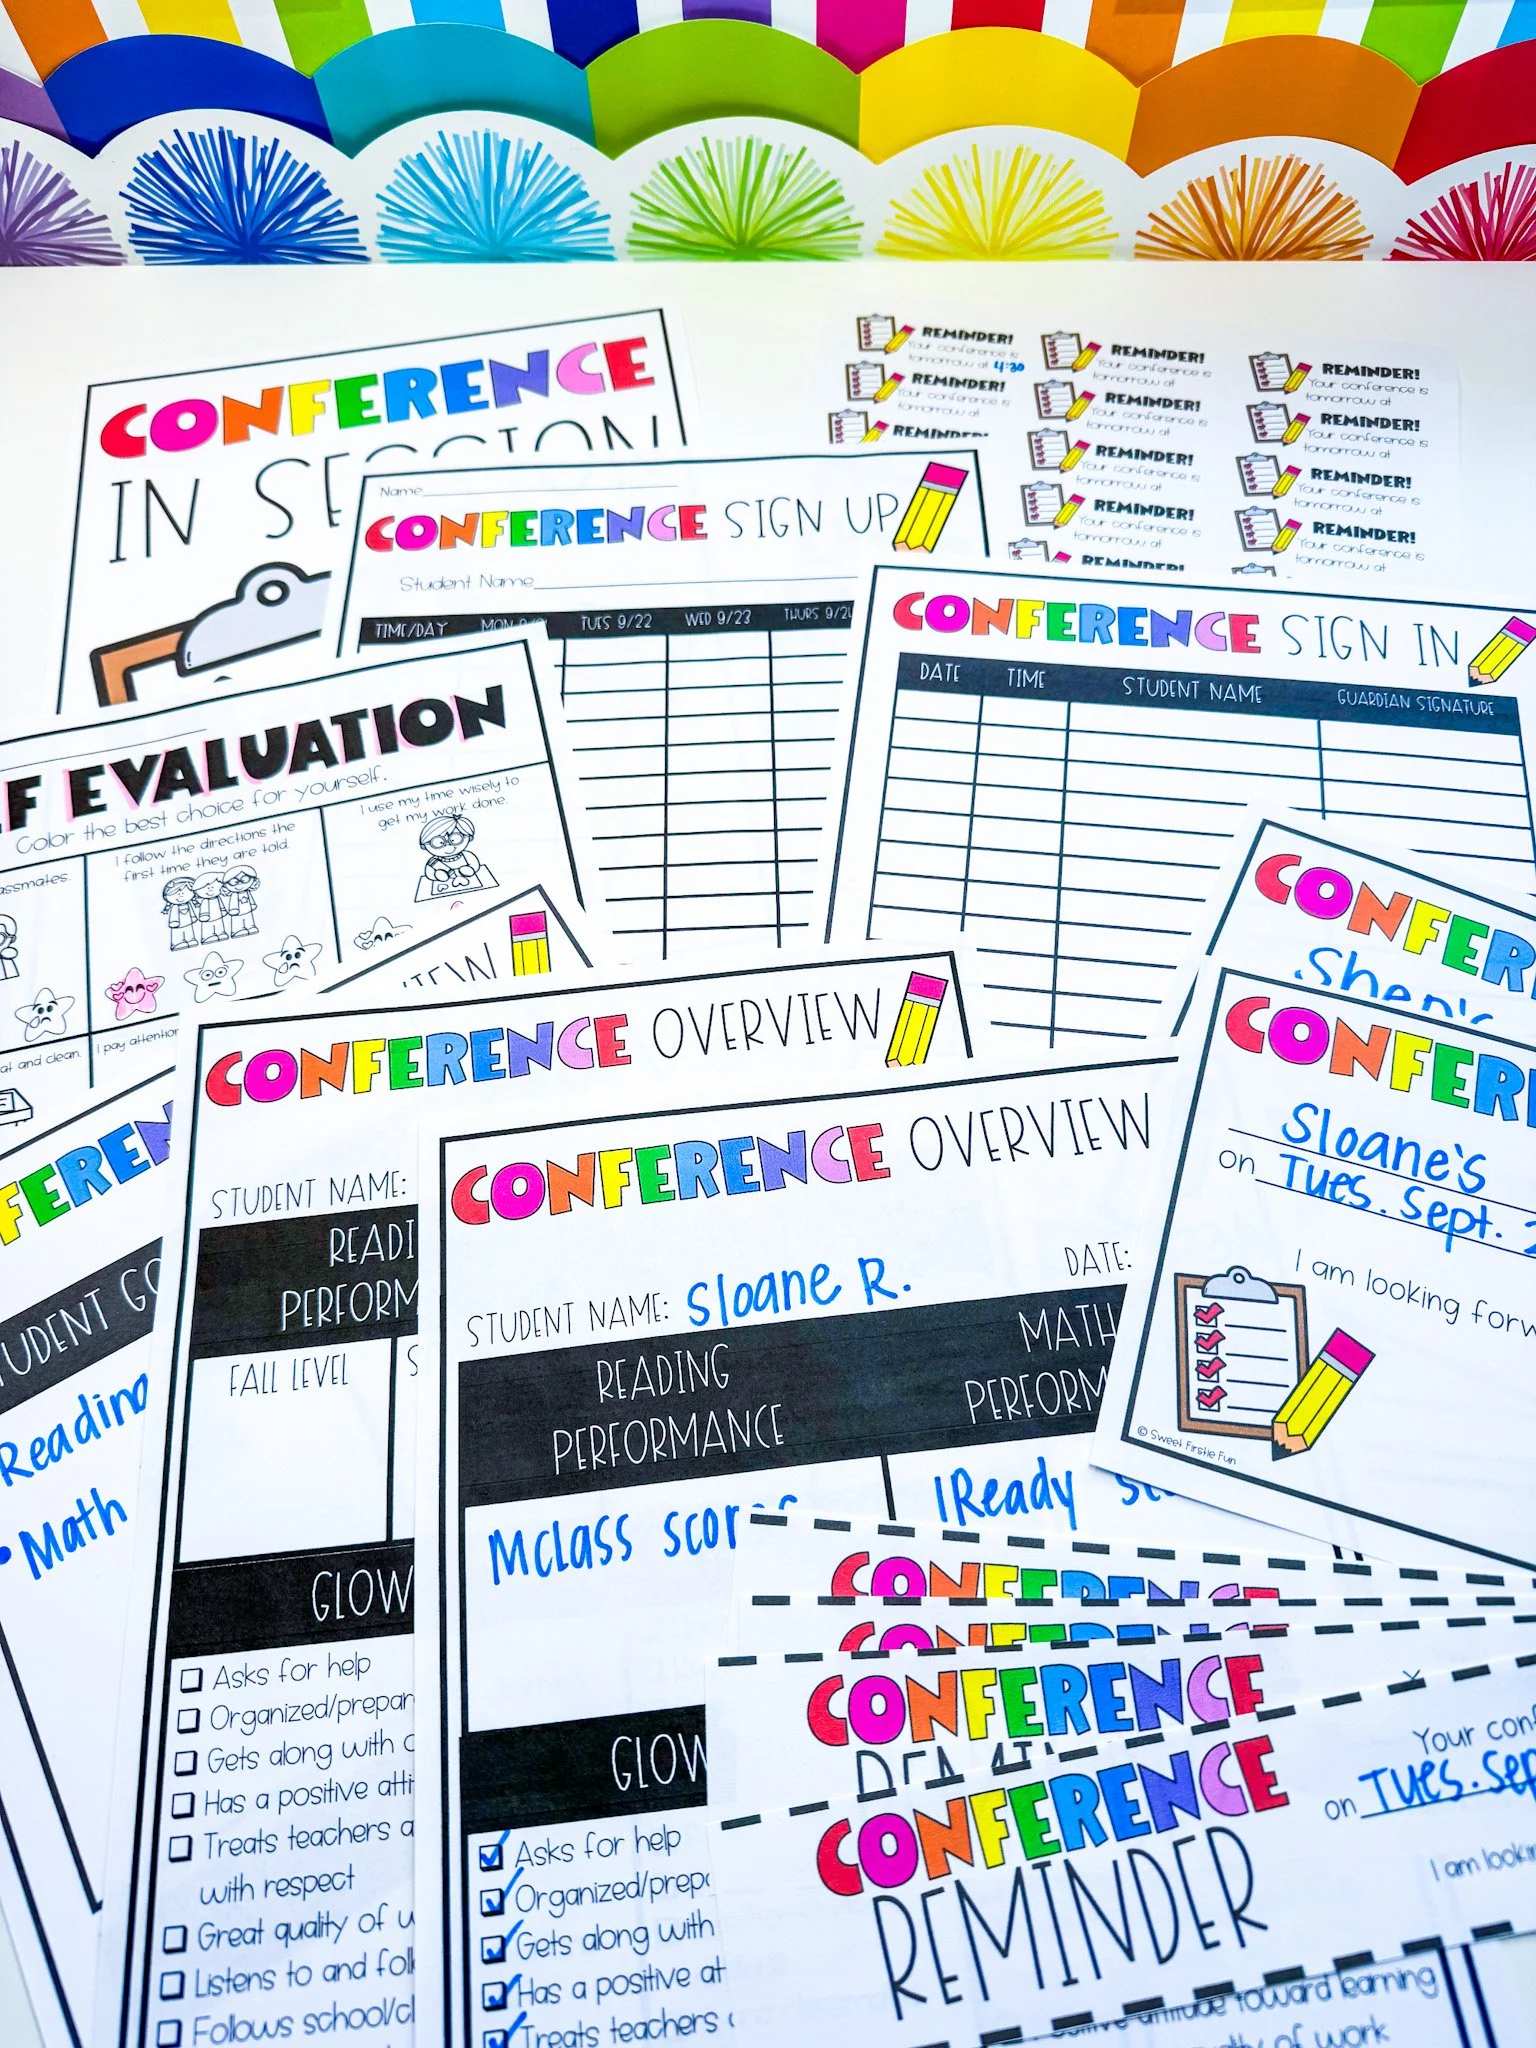 CONFERENCE
IN SESSION
REMINDER!
Your conference is
tomorrow at 4:30
REMINDER!
REMINDER!
REMINDER!
Your conference is
tomorrow at
REMINDER!
Your conference is
tomorrow at
REMINDER!
Your conference is
tomorrow at
REMINDER!
Your conference is
tomorrow at
REMINDER!
REMINDER!
Your conference is
tomorrow at
REMINDER!
Your conference is
tomorrow at
REMINDER!
Your conference is
tomorrow at
REMINDER!
Your conference is
tomorrow at
Name
CONFERENCE SIGN UP
Student Name
TIME/DAY MON TUES 9/22 WED 9/23 THURS 9/24
CONFERENCE SIGN IN
DATE TIME STUDENT NAME GUARDIAN SIGNATURE
F EVALUATION
Color the best choice for yourself.
assmates.
I follow the directions the
first time they are told.
I use my time wisely to
get my work done.
at and clean.
I pay attention
CONFERENCE OVERVIEW
STUDENT NAME:
READI
PERFORM
FALL LEVEL S
GLOW
Asks for help
Organized/prepar
Gets along with o
Has a positive atti
Treats teachers a
with respect
Great quality of w
Listens to and foll
Follows school/cl
NFEREN
UDENT GO
Reading
• Math
CONFERENCE OVERVIEW
DATE:
STUDENT NAME: Sloane R.
READING
PERFORMANCE
MATH
PERFORM
Mclass scores
IReady
GLOW
Asks for help
Organized/prepa
Gets along with
Has a positive at
Treats teachers
CONFER
CONFERE
Sloane's
on Tues. Sept. 2
I am looking forw
© Sweet Firstie Fun
CONFERENCE
CONFERENCE
CONFERENCE
REMIN
CONFERENCE
REMINDER
Your conf
on Tues. Sep
I am lookin
positive attitude toward learning
of work